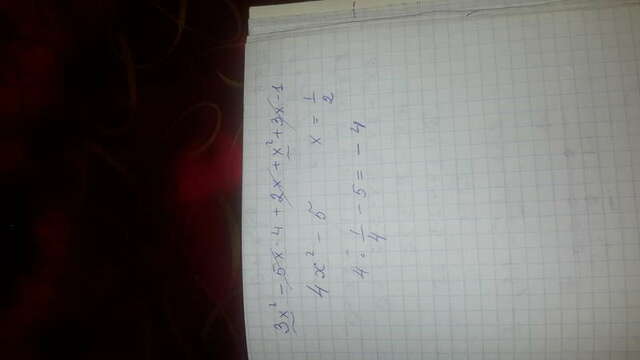 3x² - 5x - 4 + 2x + x² + 3x - 1
4x² - 5 x = 1/2
4 · 1/4 - 5 = - 4